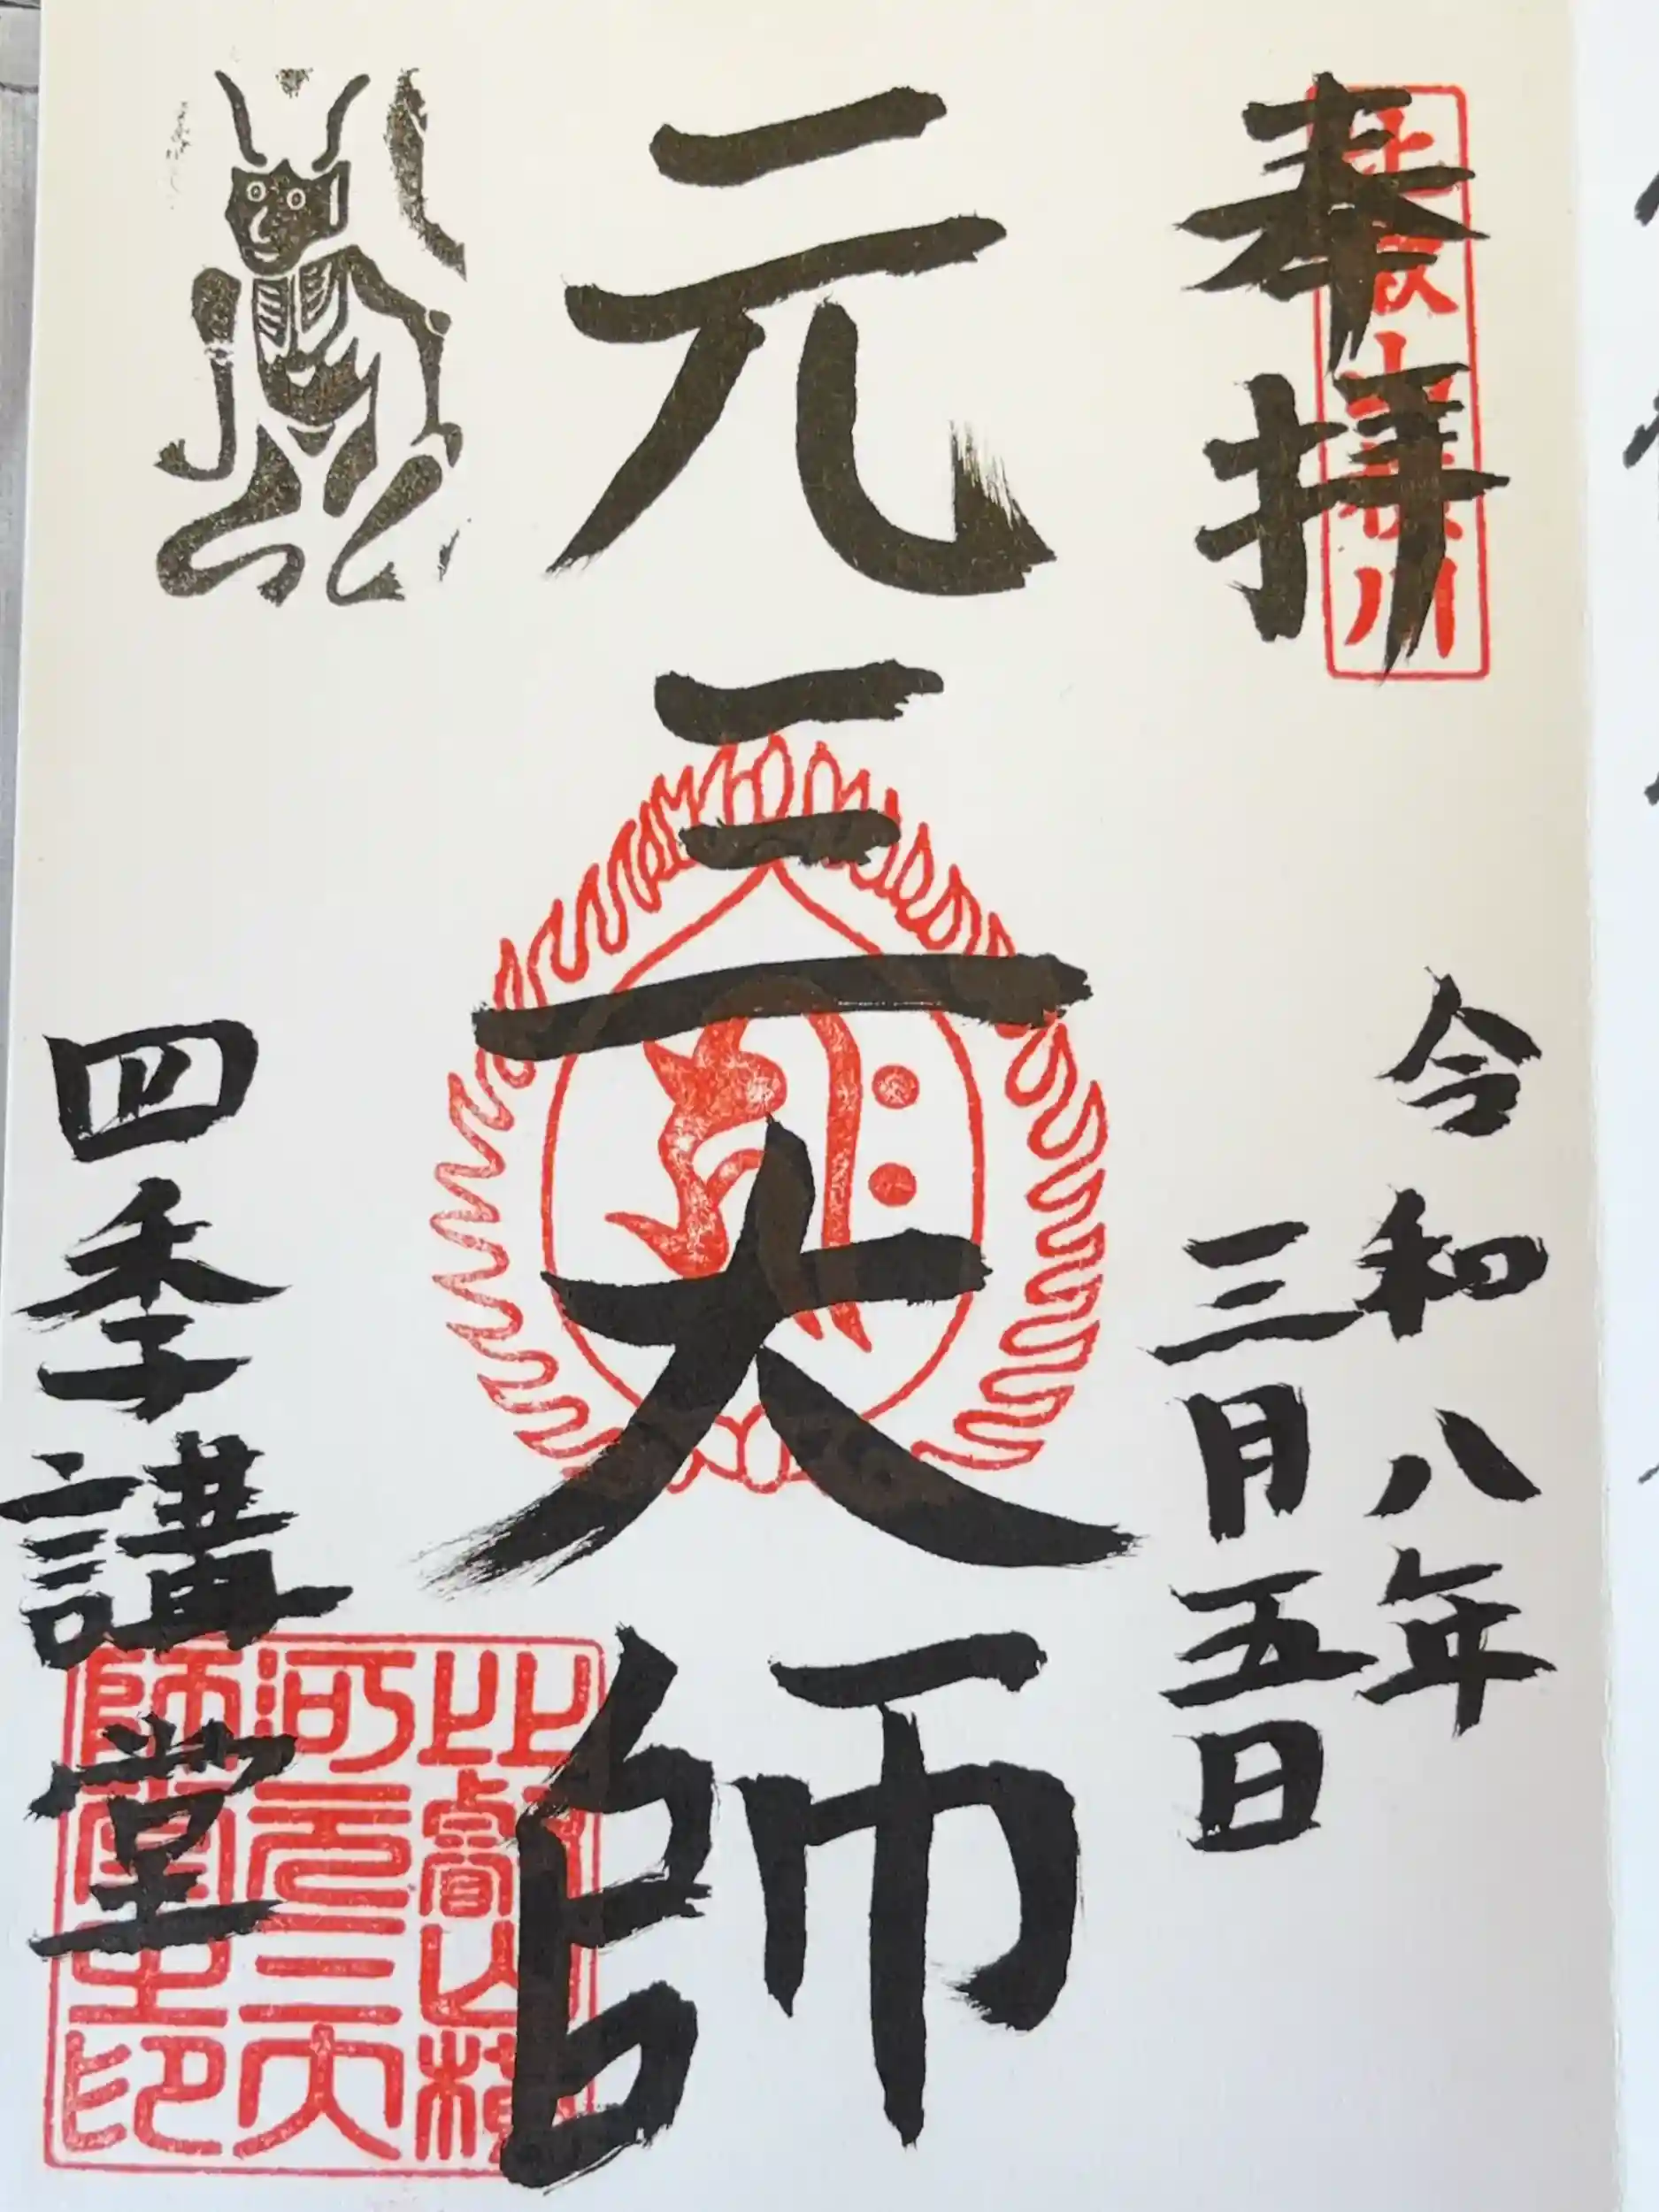 奉拝
令和八年
三月五日
元三大師
四季講堂
比叡山横
河元三大
師堂之印